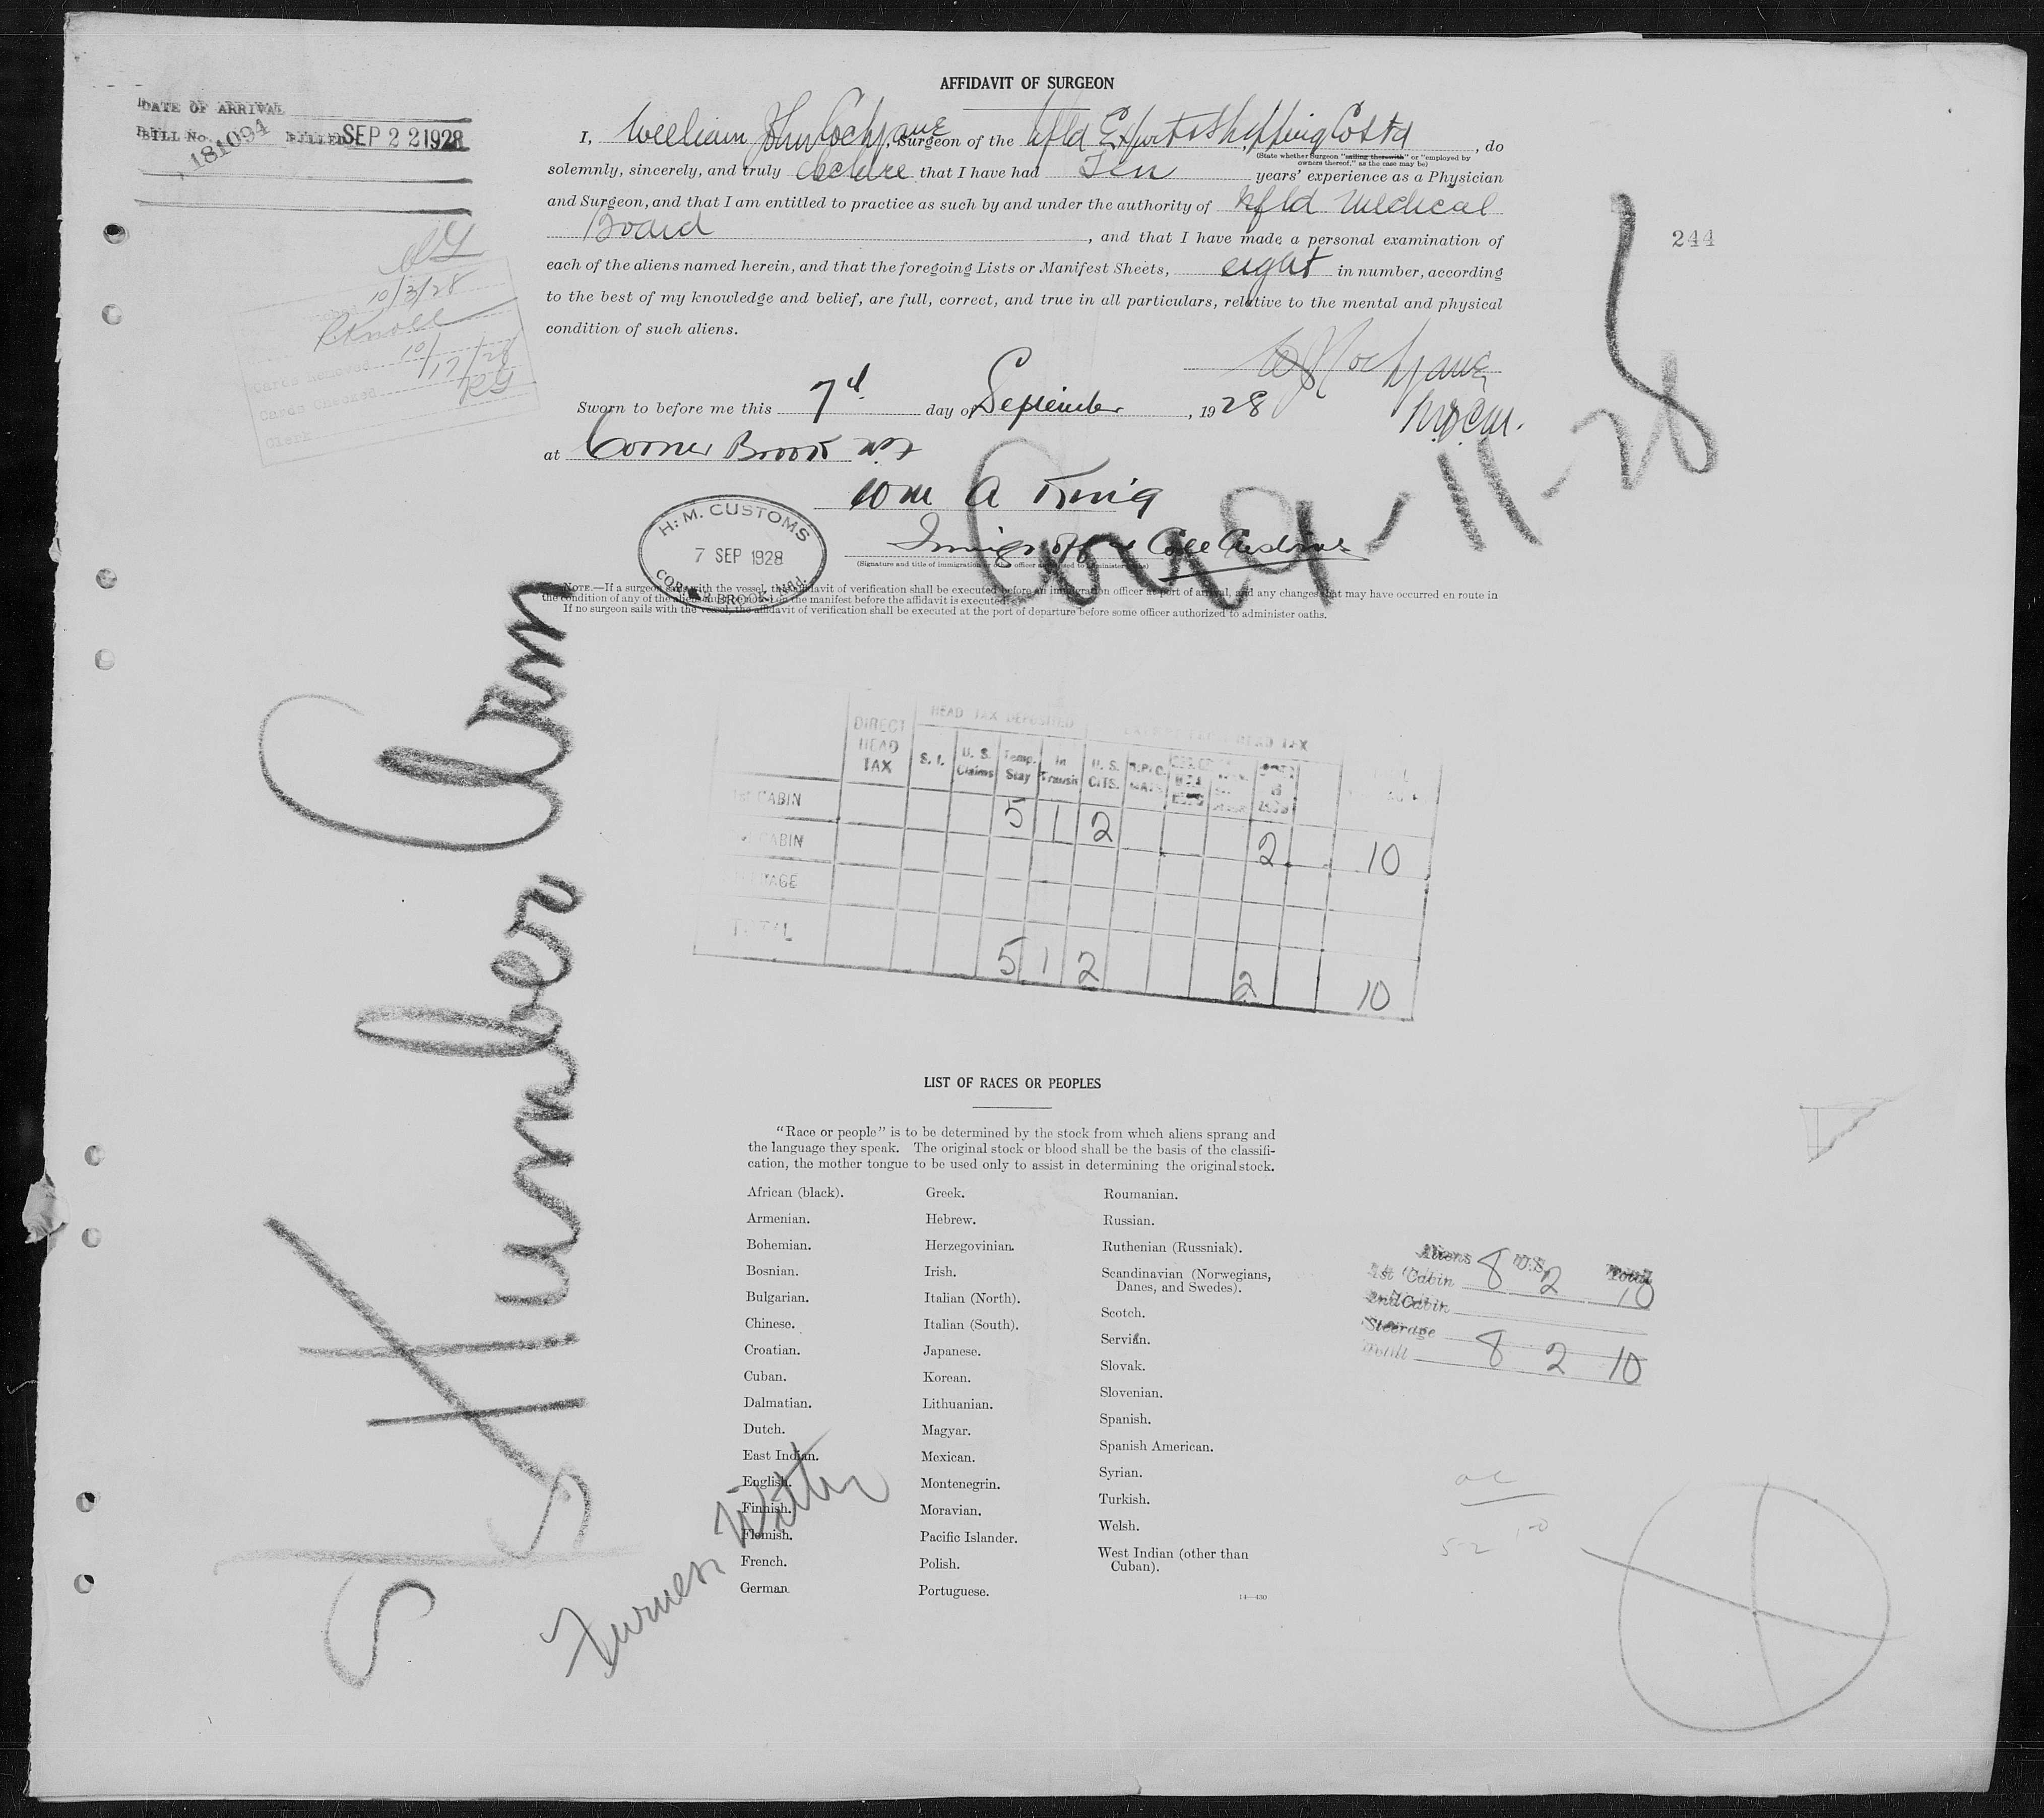 AFFIDAVIT OF SURGEON
DATE OF ARRIVAL
BILL No. 181094 BILLED SEP 22 1928
I, William John Cochrane, Surgeon of the Nfld Export & Shipping Co Ltd, do
(State whether Surgeon "sailing therewith" or "employed by
owners thereof," as the case may be)
solemnly, sincerely, and truly declare that I have had Ten years' experience as a Physician
and Surgeon, and that I am entitled to practice as such by and under the authority of Nfld Medical
Board, and that I have made a personal examination of
244
each of the aliens named herein, and that the foregoing Lists or Manifest Sheets, eight in number, according
to the best of my knowledge and belief, are full, correct, and true in all particulars, relative to the mental and physical
condition of such aliens.
10/3/28
Cards Removed 10/17/28
Cards Checked RG
Clerk
W J Cochrane
M.D.C.M.
Sworn to before me this 7d day of September, 1928
at Corner Brook Nfd
Wm A King
(Signature and title of immigration or other officer authorized to administer oaths)
H. M. CUSTOMS
7 SEP 1928
CORNER BROOK, Nfld.
NOTE.—If a surgeon sails with the vessel, the affidavit of verification shall be executed before an immigration officer at port of arrival, and any changes that may have occurred en route in
the condition of any of the aliens must be noted on the manifest before the affidavit is executed.
If no surgeon sails with the vessel, the affidavit of verification shall be executed at the port of departure before some officer authorized to administer oaths.
9-11-28
S/S Humber Arm
HEAD TAX DEPOSITED
DIRECT HEAD TAX S. I. U. S. Claims Temp. Stay In Transit U. S. CITS.
1st CABIN 5 1 2 2 10
CABIN
TOTAL 5 1 2 2 10
LIST OF RACES OR PEOPLES
"Race or people" is to be determined by the stock from which aliens sprang and
the language they speak. The original stock or blood shall be the basis of the classifi-
cation, the mother tongue to be used only to assist in determining the original stock.
African (black).
Armenian.
Bohemian.
Bosnian.
Bulgarian.
Chinese.
Croatian.
Cuban.
Dalmatian.
Dutch.
East Indian.
English.
Finnish.
Flemish.
French.
German
Greek.
Hebrew.
Herzegovinian.
Irish.
Italian (North).
Italian (South).
Japanese.
Korean.
Lithuanian.
Magyar.
Mexican.
Montenegrin.
Moravian.
Pacific Islander.
Polish.
Portuguese.
Roumanian.
Russian.
Ruthenian (Russniak).
Scandinavian (Norwegians,
Danes, and Swedes).
Scotch.
Servian.
Slovak.
Slovenian.
Spanish.
Spanish American.
Syrian.
Turkish.
Welsh.
West Indian (other than
Cuban).
14—430
Aliens U.S. Total
1st Cabin 8 2 10
2nd Cabin
Steerage
Total 8 2 10
Furness Withy
5-2